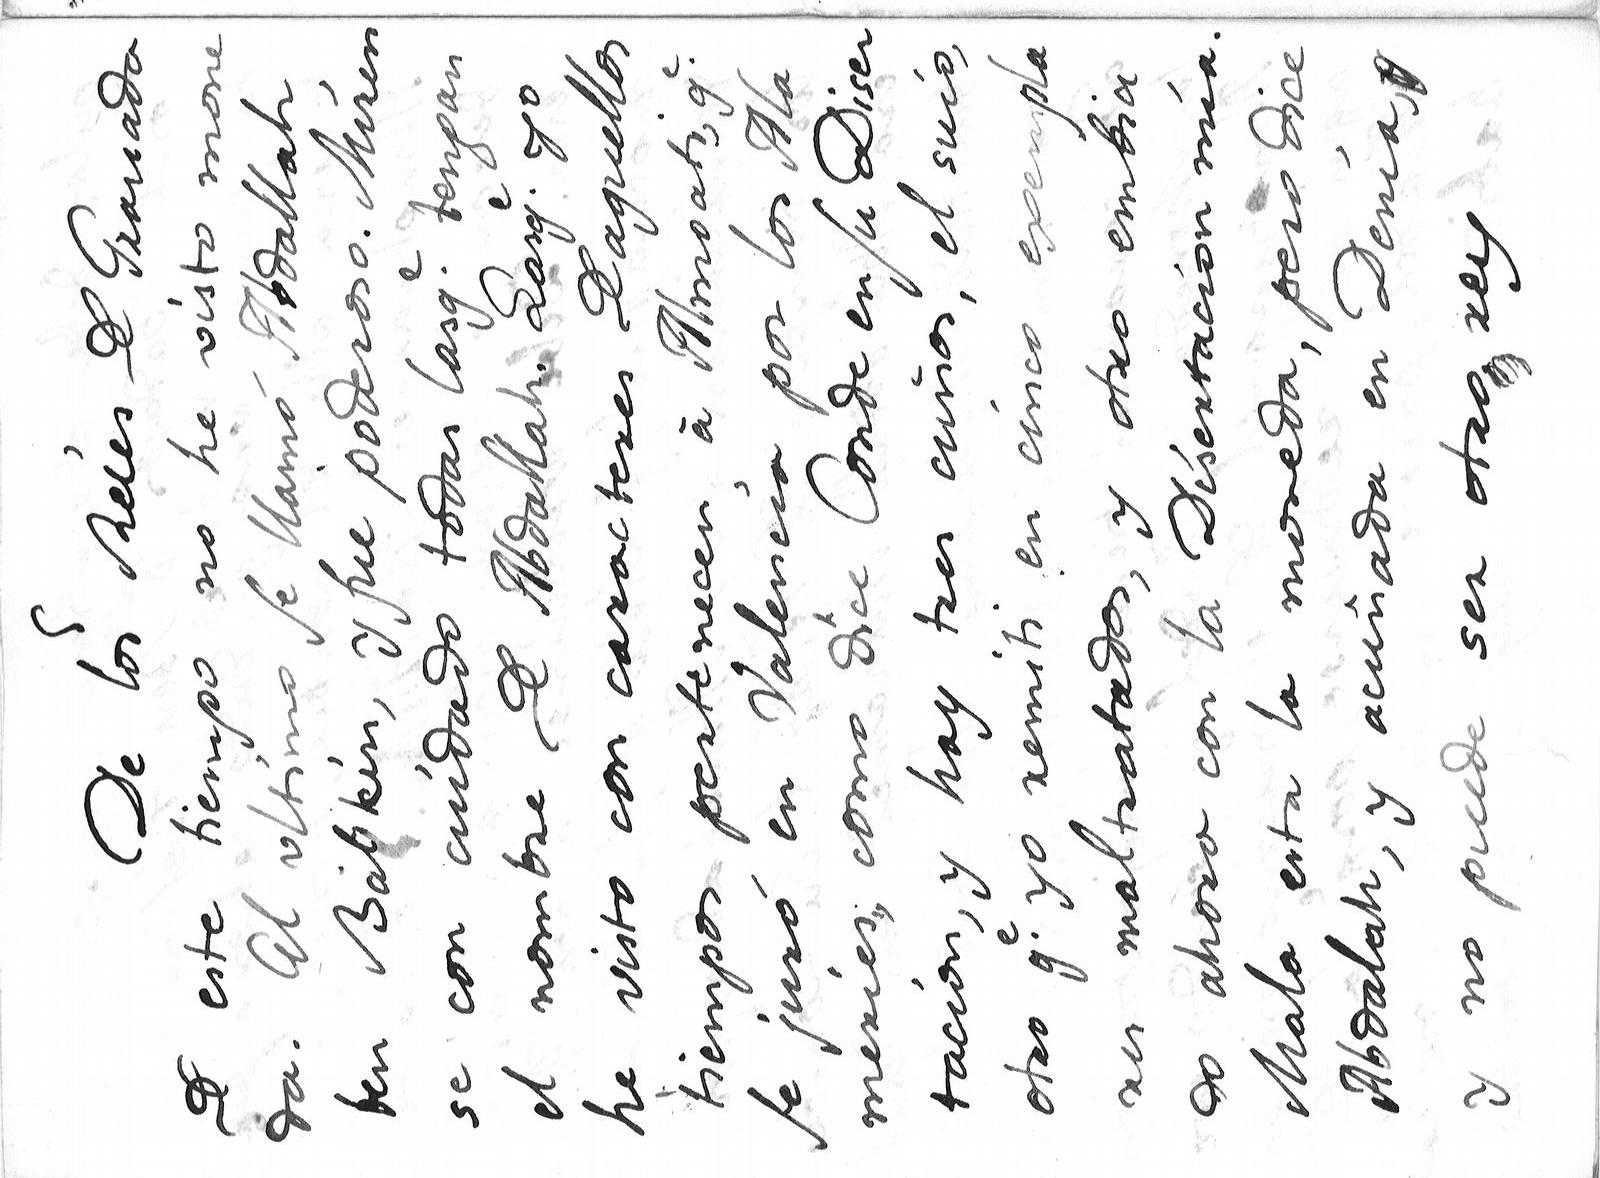 De los Reies De Granada
De este tiempo no he visto mone
da. Al ultimo se llamó Abdallah
ben Balkin, y fue poderoso. Miren
se con cuidado todas las q.e tengan
el nombre De Abdallah. Las q.e yo
he visto con caracteres Daquellos
tiempos pertenecen à Almoati, q.e
se juró en Valencia por los Ala
meries, como dice Conde en su Diser
tacion, y hay tres cuños, el suio,
otro q.e yo remiti en cinco exempla
res maltratados, y otro embia
do ahora con la Disertacion mia.
Mala esta la moneda, pero dice
Abdalah, y acuñada en Denia,
y no puede ser otro rey